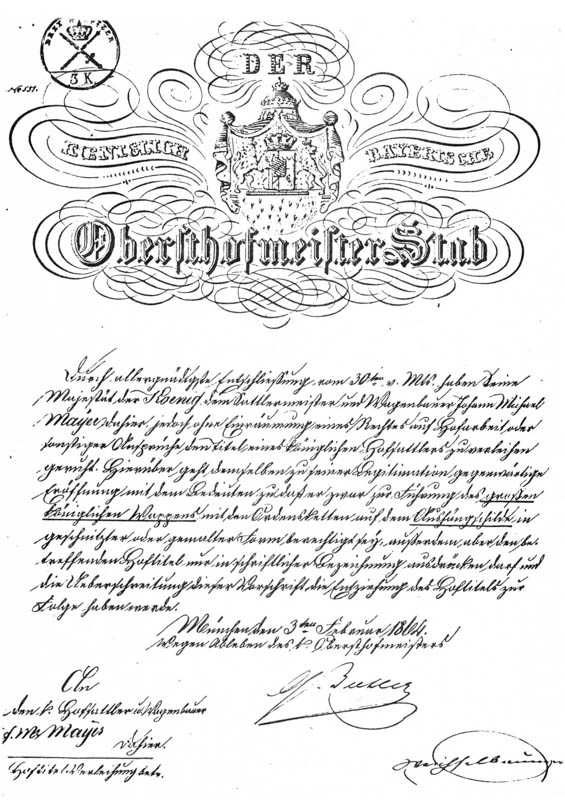 3 K
No 531.
DER
KŒNIGLICH BAYERISCHE
Obersthofmeister Stab
Durch allergnädigste Entschließung vom 30ten v. Mts. haben Seine
Majestät der Koenig dem Sattlermeister und Wagenbauer Johann Michael
Mayer dahier, jedoch ohne Einraumung eines Rechtes auf Hofarbeit oder
sonstiger Ansprüche den Titel eines königlichen Hofsattlers zu verleihen
geruht. Hierüber geht demselben zu seiner Legitimation gegenwärtige
Eröffnung mit dem Bedeuten zu, daß er zwar zur Führung des großen
Königlichen Wappens mit den Ordensketten auf dem Aushängschilde in
geschnitzter oder gemalter Form berechtigt sey, außerdem aber den be-
treffenden Hoftitel nur in schriftlicher Bezeichnung ausdrücken darf und
die Ueberschreitung dieser Vorschrift die Entziehung des Hoftitels zur
Folge haben werde.
München den 3ten Februar 1864.
Wegen Ableben des k. Obersthofmeisters
An
den k. Hofsattler u. Wagenbauer
Mayer
dahier.
Hoftitel-Verleihung betr.